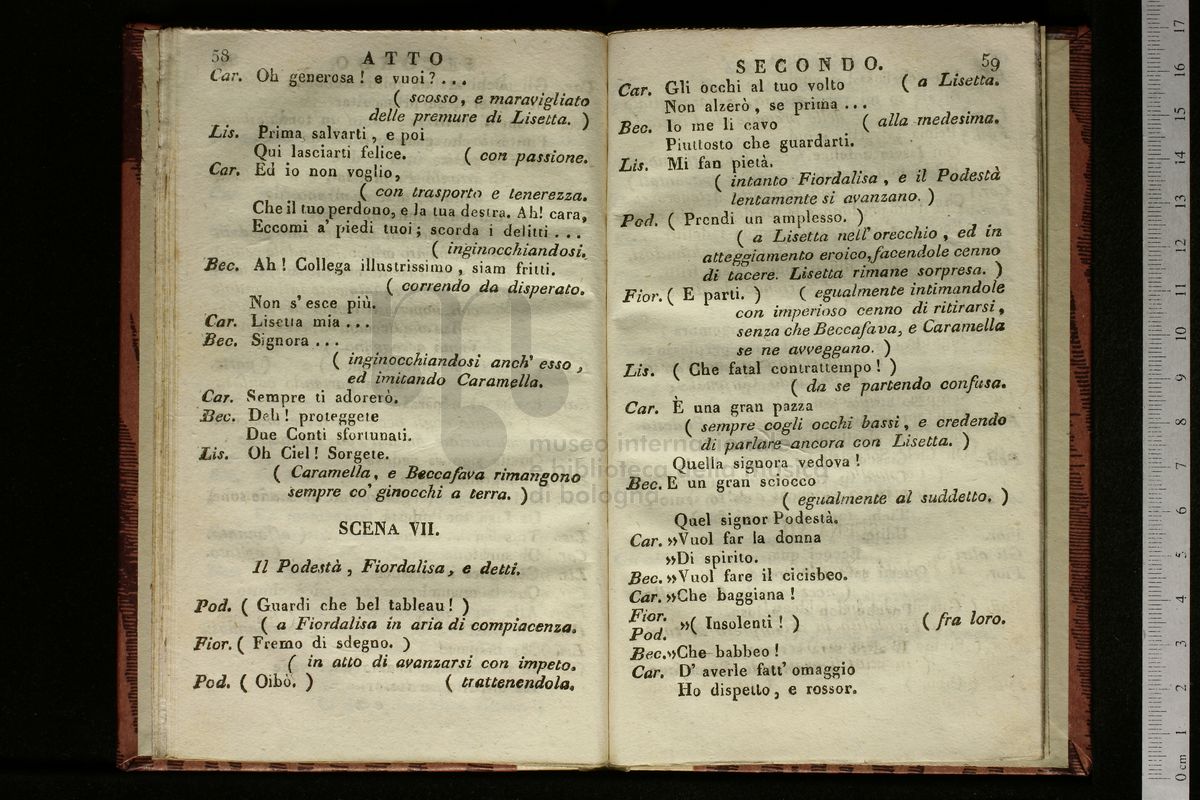 58
ATTO
Car. Oh generosa! e vuoi? ...
( scosso, e maravigliato
delle premure di Lisetta. )
Lis. Prima salvarti, e poi
Qui lasciarti felice. ( con passione.
Car. Ed io non voglio,
( con trasporto e tenerezza.
Che il tuo perdono, e la tua destra. Ah! cara,
Eccomi a' piedi tuoi; scorda i delitti ...
( inginocchiandosi.
Bec. Ah! Collega illustrissimo, siam fritti.
( correndo da disperato.
Non s'esce più.
Car. Lisetta mia ...
Bec. Signora ...
( inginocchiandosi anch' esso,
ed imitando Caramella.
Car. Sempre ti adorerò.
Bec. Deh! proteggete
Due Conti sfortunati.
Lis. Oh Ciel! Sorgete.
( Caramella, e Beccafava rimangono
sempre co' ginocchi a terra. )
SCENA VII.
Il Podestà, Fiordalisa, e detti.
Pod. ( Guardi che bel tableau! )
( a Fiordalisa in aria di compiacenza.
Fior. ( Fremo di sdegno. )
( in atto di avanzarsi con impeto.
Pod. ( Oibò. ) ( trattenendola.
SECONDO.
59
Car. Gli occhi al tuo volto ( a Lisetta.
Non alzerò, se prima ...
Bec. Io me li cavo ( alla medesima.
Piuttosto che guardarti.
Lis. Mi fan pietà.
( intanto Fiordalisa, e il Podestà
lentamente si avanzano. )
Pod. ( Prendi un amplesso. )
( a Lisetta nell' orecchio, ed in
atteggiamento eroico, facendole cenno
di tacere. Lisetta rimane sorpresa. )
Fior. ( E parti. ) ( egualmente intimandole
con imperioso cenno di ritirarsi,
senza che Beccafava, e Caramella
se ne avveggano. )
Lis. ( Che fatal contrattempo! )
( da se partendo confusa.
Car. È una gran pazza
( sempre cogli occhi bassi, e credendo
di parlare ancora con Lisetta. )
Quella signora vedova!
Bec. E un gran sciocco
( egualmente al suddetto. )
Quel signor Podestà.
Car. »Vuol far la donna
»Di spirito.
Bec. »Vuol fare il cicisbeo.
Car. »Che baggiana!
Fior.
Pod. »( Insolenti! ) ( fra loro.
Bec. »Che babbeo!
Car. D' averle fatt' omaggio
Ho dispetto, e rossor.
museo internazionale
e biblioteca della musica
di bologna
0 cm 1 2 3 4 5 6 7 8 9 10 11 12 13 14 15 16 17